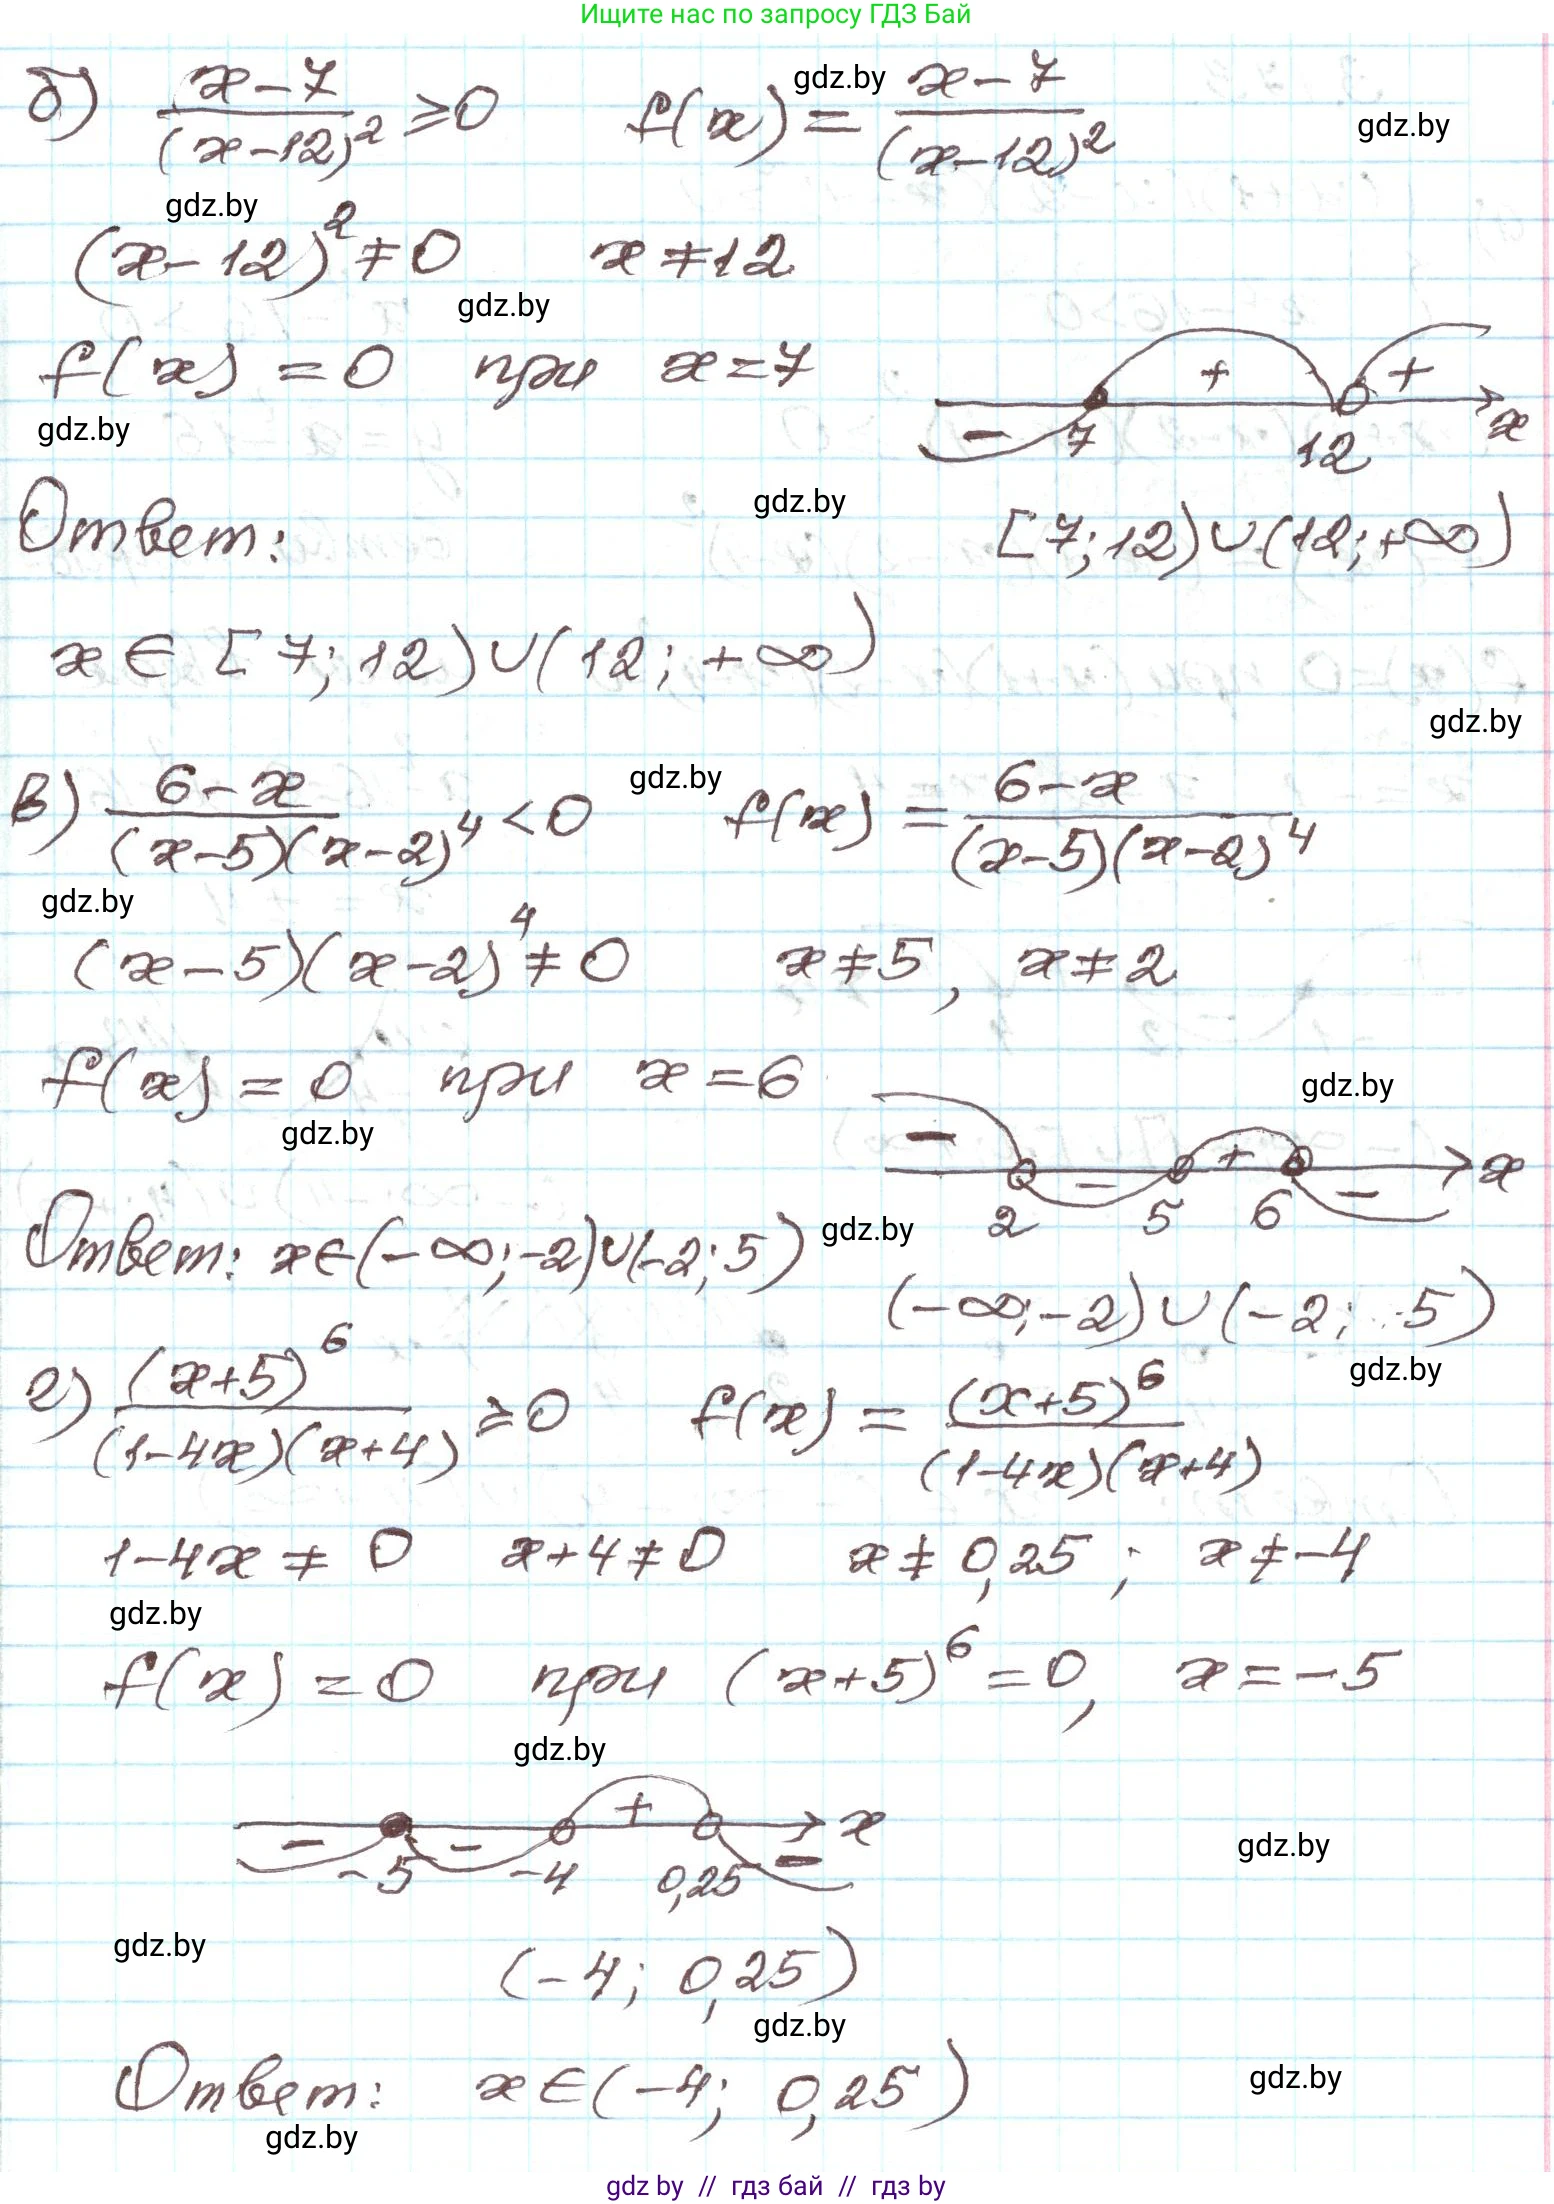 Ищите нас по запросу ГДЗ Бай
б) (x-7)/(x-12)² ≥ 0    f(x) = (x-7)/(x-12)²
gdz.by
gdz.by
gdz.by
(x-12)² ≠ 0    x ≠ 12
gdz.by
f(x) = 0 при x = 7
- 7 + 12 + x
gdz.by
gdz.by
Ответ:    [7; 12) ∪ (12; +∞)
x ∈ [7; 12) ∪ (12; +∞)
gdz.by
в) (6-x)/((x-5)(x-2)⁴) < 0    gdz.by    f(x) = (6-x)/((x-5)(x-2)⁴)
gdz.by
(x-5)(x-2)⁴ ≠ 0    x ≠ 5, x ≠ 2
f(x) = 0 при x = 6
gdz.by
gdz.by
- 2 - 5 + 6 - x
Ответ: x ∈ (-∞; -2) ∪ (-2; 5)    gdz.by
(-∞; -2) ∪ (-2; 5)
gdz.by
г) (x+5)⁶/((1-4x)(x+4)) ≥ 0    f(x) = (x+5)⁶/((1-4x)(x+4))
1-4x ≠ 0    x+4 ≠ 0    x ≠ 0,25; x ≠ -4
gdz.by
f(x) = 0 при (x+5)⁶ = 0, x = -5
gdz.by
- -5 - -4 + 0,25 - x
gdz.by
gdz.by
(-4; 0,25)
gdz.by
Ответ: x ∈ (-4; 0,25)
gdz.by
gdz.by
gdz by // гдз бай // гдз by